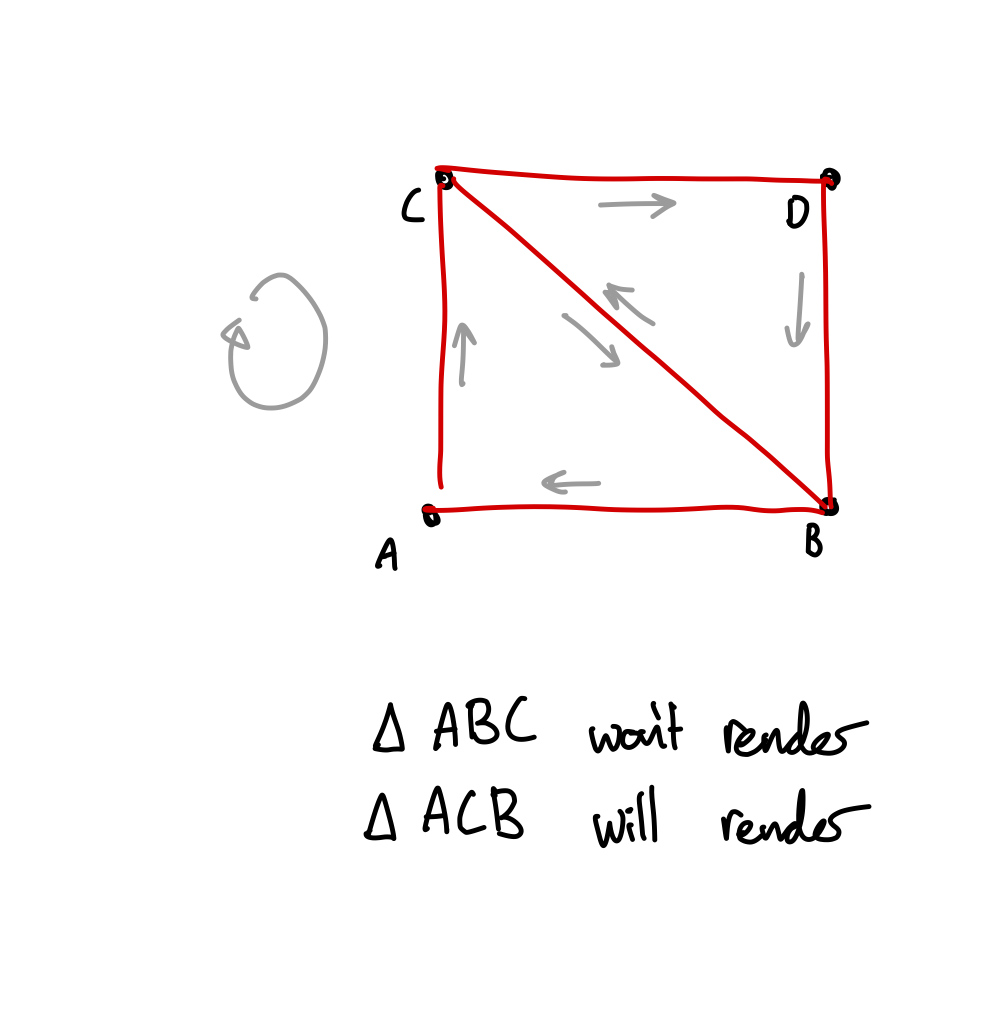 C
D
A
B
Δ ABC won't render
Δ ACB will render